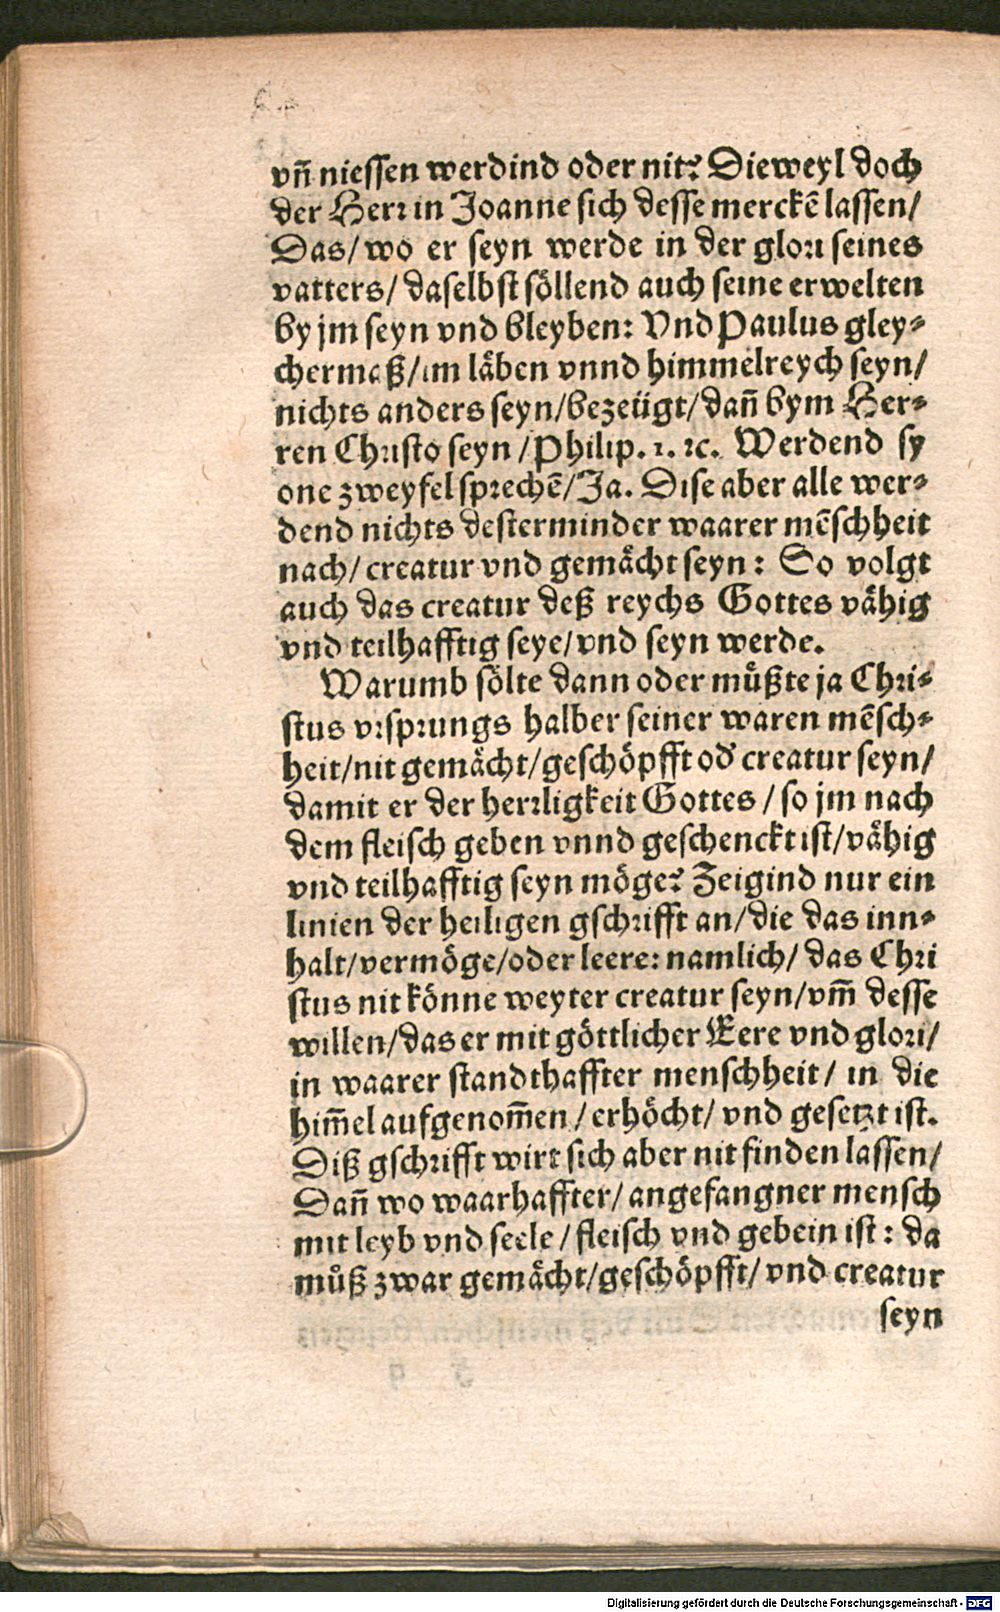 vñ niessen werdind oder nit? Dieweyl doch
der Herr in Joanne sich desse merckē lassen/
Das/ wo er seyn werde in der glori seines
vatters/ daselbst söllend auch seine erwelten
by jm seyn vnd bleyben: Vnd Paulus gley⸗
chermaß/ im läben vnnd himmelreych seyn/
nichts anders seyn/ bezeügt/ dañ bym Her⸗
ren Christo seyn/ Philip. 1. ꝛc. Werdend sy
one zweyfel sprechē/ Ja. Dise aber alle wer⸗
dend nichts desterminder waarer mēschheit
nach/ creatur vnd gemächt seyn: So volgt
auch das creatur deß reychs Gottes vähig
vnd teilhafftig seye/ vnd seyn werde.
Warumb sölte dann oder müßte ja Chri⸗
stus vrsprungs halber seiner waren mēsch⸗
heit/ nit gemächt/ geschöpfft od' creatur seyn/
damit er der herrligkeit Gottes/ so jm nach
dem fleisch geben vnnd geschenckt ist/ vähig
vnd teilhafftig seyn möge? Zeigind nur ein
linien der heiligen gschrifft an/ die das inn⸗
halt/ vermöge/ oder leere: namlich/ das Chri
stus nit könne weyter creatur seyn/ vm̄ desse
willen/ das er mit göttlicher Eere vnd glori/
in waarer standthaffter menschheit/ in die
him̄el aufgenom̄en/ erhöcht/ vnd gesetzt ist.
Diß gschrifft wirt sich aber nit finden lassen/
Dañ wo waarhaffter/ angefangner mensch
mit leyb vnd seele/ fleisch vnd gebein ist: da
můß zwar gemächt/ geschöpfft/ vnd creatur
seyn
Digitalisierung gefördert durch die Deutsche Forschungsgemeinschaft - DFG